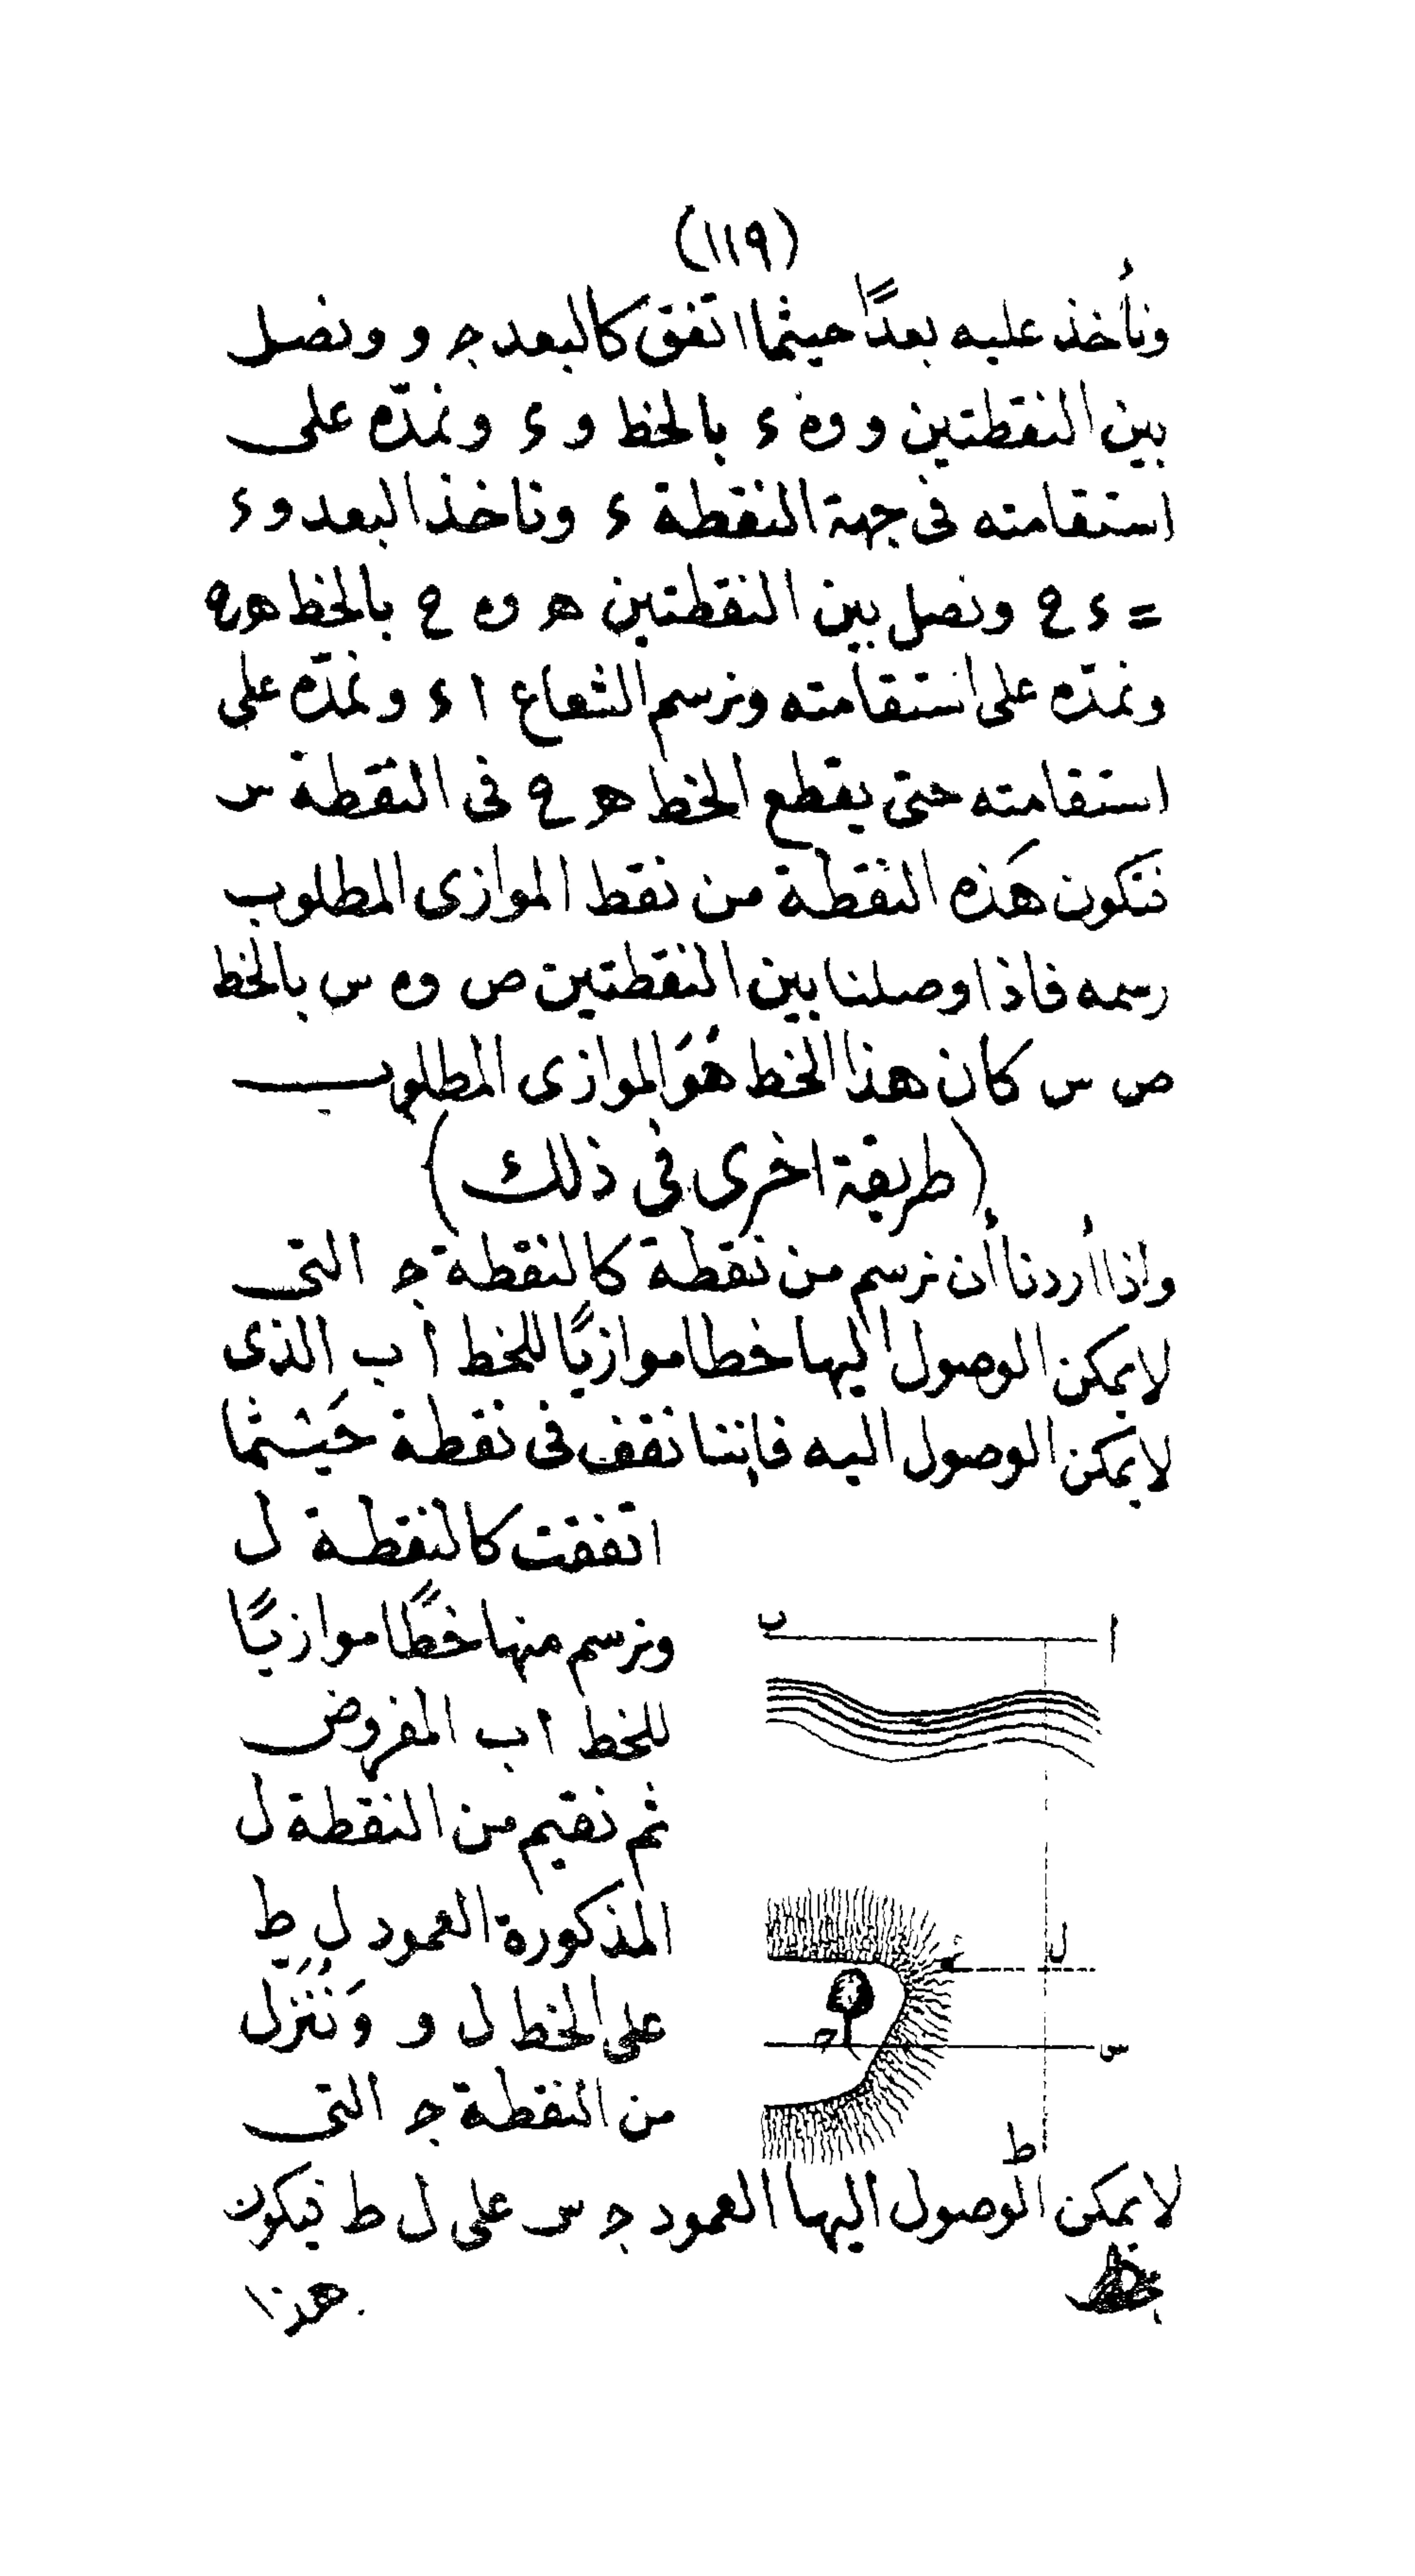 (١١٩)
ونأخذ عليه بعدًا حيثما اتفق كالبعد ج و ونصل
بين النقطتين و و٥ ء بالخط و ء ونمدّه على
استقامته فى جهة النقطة ء وناخذ البعد و ء
= ء ع ونصل بين النقطتين ه و٥ ع بالخط ه ع
ونمدّه على استقامته ونرسم الشعاع ا ء ونمدّه على
استقامته حتى يقطع الخط ه ع فى النقطة س
فتكون هَذه النقطة من نقط الموازى المطلوب
رسمه فاذا وصلنا بين النقطتين ص و٥ س بالخط
ص س كان هذا الخط هُوَ الموازى المطلوب
(طريقة اخرى فى ذلك)
واذا أردنا أن نرسم من نقطة كالنقطة ج التى
لا يمكن الوصول اليها خطا موازيًا للخط ا ب الذى
لا يمكن الوصول اليه فإننا نقف فى نقطة حَيثما
اتفقت كالنقطة ل
ونرسم منها خطًا موازيًا
للخط ا ب المفروض
ثم نقيم من النقطة ل
المذكورة العمود ل ط
على الخط ل و وَنُنَزل
من النقطة ج التى
لا يمكن الوصول اليها العمود ج س على ل ط فيكون
هذا
ا
ب
ل
ء
ج
س
ط